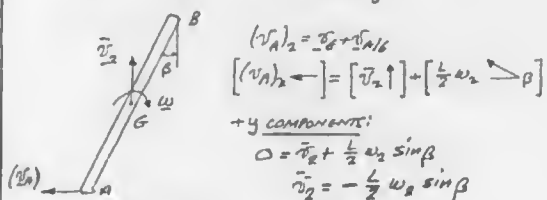 B
v̄₂
β
ω
G
(v_A)
A
(v_A)₂ = v_G + v_A/G
[(v_A)₂ ←] = [v̄₂ ↑] + [L/2 ω₂ β]
+y COMPONENTS:
0 = v̄₂ + L/2 ω₂ sin β
v̄₂ = - L/2 ω₂ sin β